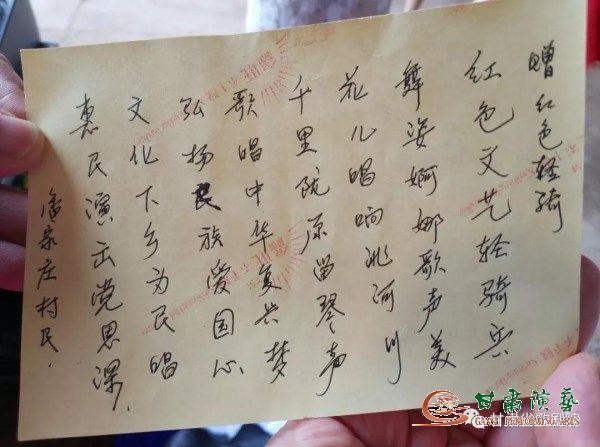 赠红色轻骑
红色文艺轻骑兵
舞姿婀娜歌声美
花儿唱响洮河川
千里陇原留琴声
歌唱中华复兴梦
弘扬民族爱国心
文化下乡为民唱
惠民演出党恩深,
唐家庄村民.
甘肃演艺
GANSU PERFORMING ARTS